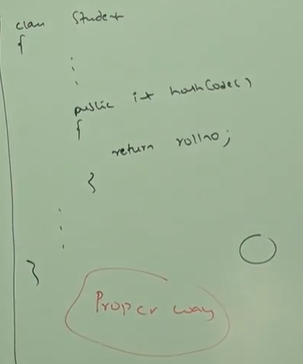 class Student
{
⋮
public int hashCode()
{
return rollno;
}
⋮
}
Proper way